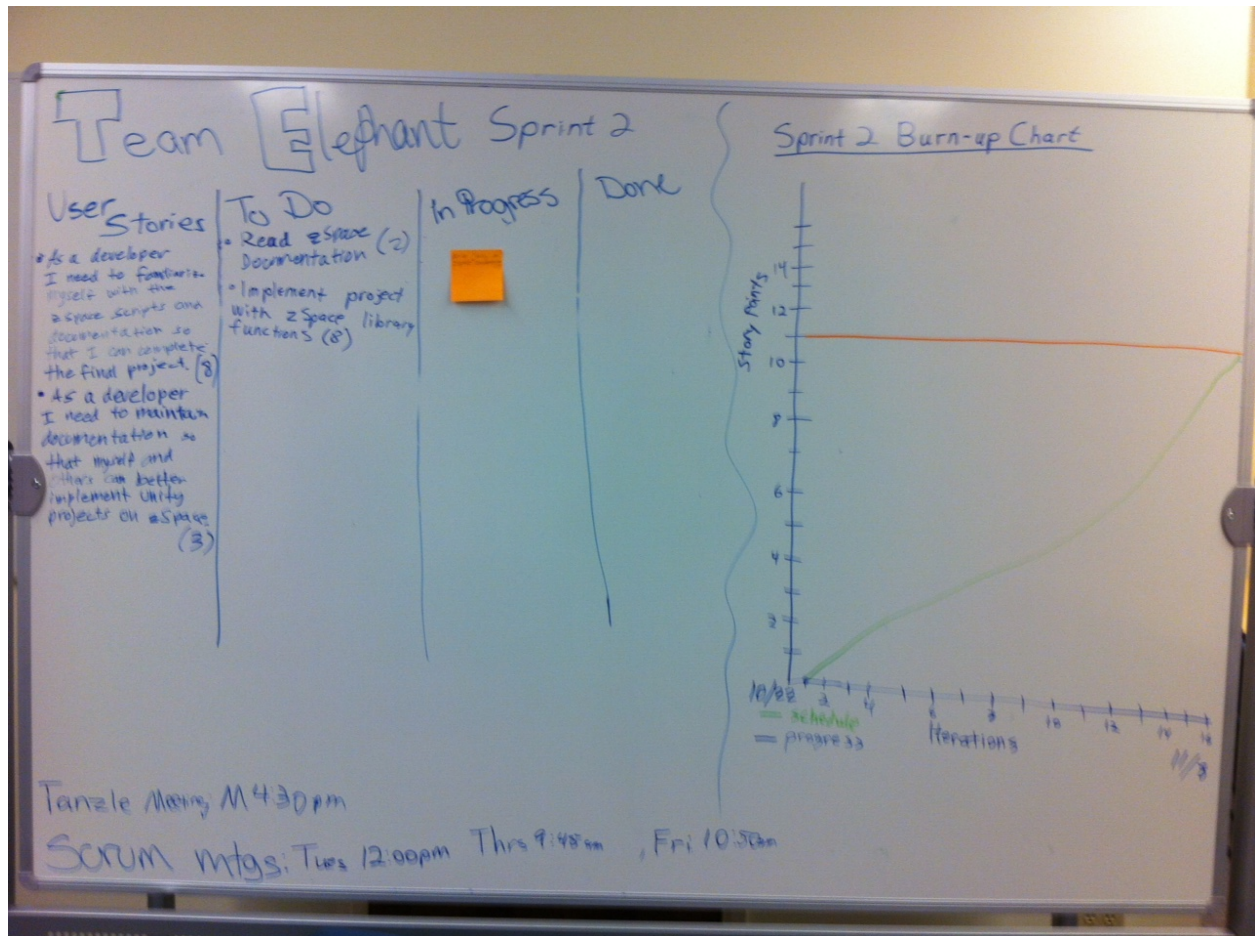 Team Elephant Sprint 2
User Stories
• As a developer
I need to familiarize
myself with the
zSpace scripts and
documentation so
that I can complete
the final project. (8)
• As a developer
I need to maintain
documentation so
that myself and
others can better
implement unity
projects on zSpace
(3)
To Do
• Read zSpace
Documentation (2)
• Implement project
with zSpace library
functions (8)
In Progress
Done
Sprint 2 Burn-up Chart
Story Points
14
12
10
8
6
4
2
2 4 6 8 10 12 14 16
schedule
progress
Iterations
Tanzle Meeting: M 4:30pm
Scrum mtgs: Tues 12:00pm Thrs 9:45am , Fri 10:50am